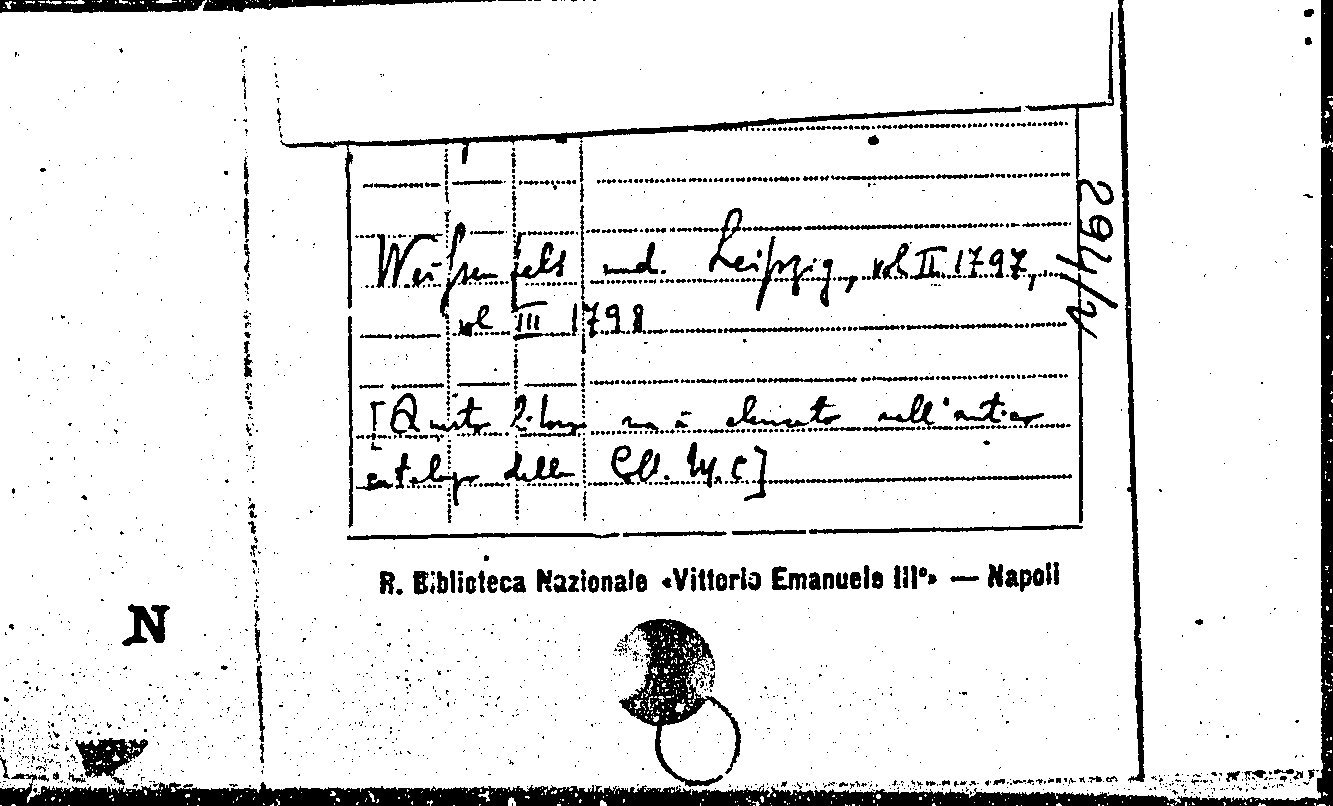 Weißenfels und. Leipzig, vol II 1797,
vol III 1798
[Questo libro era elencato nell'antico
catalogo della Coll. M.C]
294/2
R. Biblioteca Nazionale «Vittorio Emanuele III°» — Napoli
N